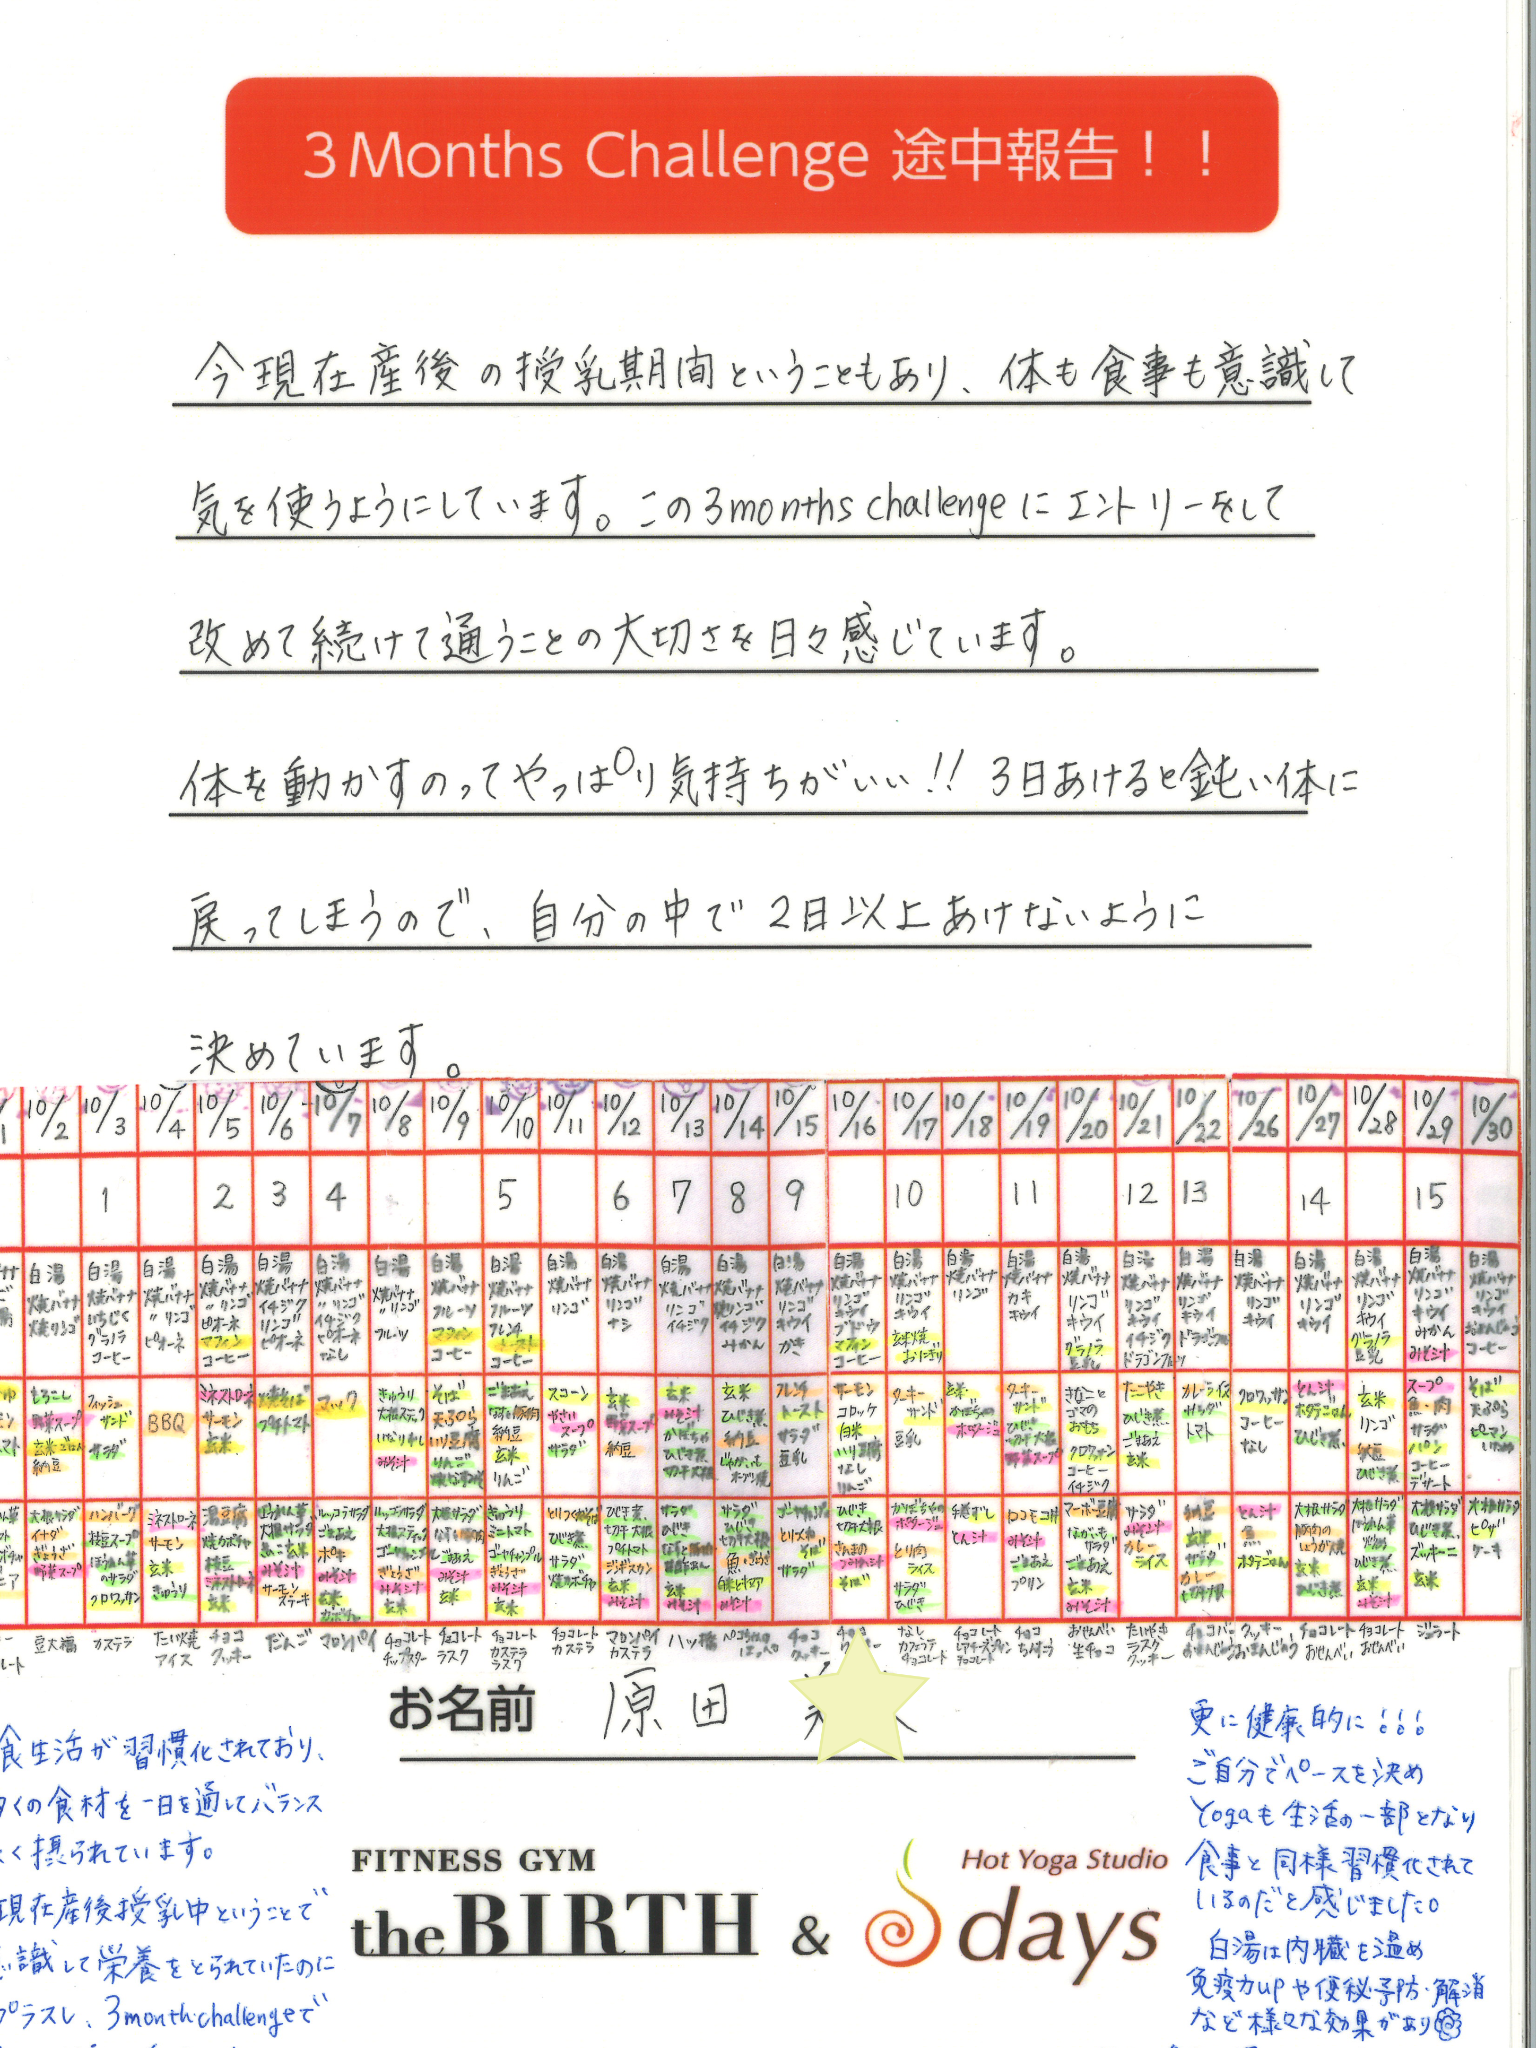 3 Months Challenge 途中報告！！
今現在産後の授乳期間ということもあり、体も食事も意識して
気を使うようにしています。この3months challengeにエントリーをして
改めて続けて通うことの大切さを日々感じています。
体を動かすのってやっぱり気持ちがいい!! 3日あけると鈍い体に
戻ってしまうので、自分の中で2日以上あけないように
決めています。
10/2 10/3 10/4 10/5 10/6 10/7 10/8 10/9 10/10 10/11 10/12 10/13 10/14 10/15 10/16 10/17 10/18 10/19 10/20 10/21 10/22 10/26 10/27 10/28 10/29 10/30
1 2 3 4 5 6 7 8 9 10 11 12 13 14 15
白湯 焼バナナ 焼リンゴ
白湯 焼バナナ いちじく グラノラ コーヒー
白湯 焼バナナ 〃リンゴ ピオーネ
白湯 焼バナナ 〃リンゴ ピオーネ マフィン コーヒー
白湯 焼バナナ イチジク リンゴ ピオーネ
白湯 焼バナナ 〃リンゴ イチジク ピオーネ なし
白湯 焼バナナ 〃リンゴ フルーツ
白湯 焼バナナ フルーツ マフィン コーヒー
白湯 焼バナナ フルーツ フレンチトースト コーヒー
白湯 焼バナナ リンゴ
白湯 焼バナナ リンゴ ナシ
白湯 焼バナナ リンゴ イチジク
白湯 焼バナナ 焼リンゴ イチジク みかん
白湯 焼バナナ リンゴ キウイ かき
白湯 焼バナナ リンゴ キウイ ブドウ マフィン コーヒー
白湯 焼バナナ リンゴ キウイ 玄米焼おにぎり
白湯 焼バナナ リンゴ
白湯 焼バナナ カキ キウイ
白湯 焼バナナ リンゴ キウイ グラノラ 豆乳
白湯 焼バナナ リンゴ キウイ イチジク ドラゴンフルーツ
白湯 焼バナナ リンゴ キウイ ドラゴンフルーツ
白湯 焼バナナ リンゴ キウイ
白湯 焼バナナ リンゴ キウイ
白湯 焼バナナ リンゴ キウイ グラノラ 豆乳
白湯 焼バナナ リンゴ キウイ みかん みそ汁
白湯 焼バナナ リンゴ キウイ コーヒー
とうもろこし 野菜スープ 玄米ごはん 納豆
フィッシュサンド サラダ
BBQ
ミネストローネ サーモン 玄米
焼そば プチトマト
マック
きゅうり 大根スティック いなり寿し みそ汁
そば 天ぷら いり豆腐 りんご
ごまあえ 納豆 玄米 りんご
スコーン やさいスープ サラダ
玄米 野菜スープ 納豆
玄米 みそ汁 かぼちゃ ひじき煮 切干大根
玄米 ひじき煮 納豆
フレンチトースト サラダ 豆乳
サーモン コロッケ 白米 いり豆腐 なし りんご
ターキーサンド 豆乳
玄米 かぼちゃのポタージュ
ターキーサンド ひじき 切干大根 野菜スープ
きなことゴマのおもち クロワッサン コーヒー イチジク
たこやき ひじき煮 ごまあえ 玄米
カレーライス サラダ トマト
クロワッサン コーヒー なし
とん汁 ひじき煮
玄米 リンゴ 納豆 ひじき煮
スープ 魚・肉 サラダ パン コーヒー デザート
そば 天ぷら ピーマン
大根サラダ イナダ ぎょうざ 野菜スープ
ハンバーグ 枝豆スープ ほうれん草のサラダ クロワッサン
ミネストローネ サーモン 玄米 きゅうり
湯豆腐 焼カボチャ 枝豆 ミネストローネ 玄米
ほうれん草 大根サラダ 玄米 みそ汁 サーモンステーキ
ルッコラサラダ ごまあえ ポキ みそ汁 玄米
ルッコラサラダ 大根スティック ゴーヤチャンプル ぎょうざ みそ汁 玄米
大根サラダ ごまあえ みそ汁 玄米
きゅうり ミニトマト ゴーヤチャンプル ぎょうざ みそ汁 玄米
ひじき煮 サラダ 焼カボチャ
ひじき煮 切干大根 プチトマト ジンギスカン 玄米 みそ汁
サラダ ひじき 玄米 みそ汁
サラダ ひじき 切干大根 みそ汁
そば サラダ
ひじき 切干大根 そば
かぼちゃのポタージュ とり肉 ライス サラダ ひじき
手巻ずし とん汁
ロコモコ丼 みそ汁 ごまあえ プリン
マーボー豆腐 サラダ ごまあえ 玄米 みそ汁
サラダ みそ汁 カレーライス
納豆 玄米 サラダ カレー 切干大根
とん汁 魚
大根サラダ 玄米 ひじき煮
大根サラダ ひじき煮 玄米 みそ汁
大根サラダ ひじき煮 ズッキーニ 玄米
大根サラダ ピザ ケーキ
豆大福 カステラ たい焼アイス チョコクッキー だんご マロンパイ チョコレートチップスター チョコレートラスク チョコレートカステララスク チョコレートカステラ マロンパイカステラ 八ッ橋 チョコクッキー
チョコレート チョコちんすこう おせんべい生チョコ たいやきラスククッキー チョコレートおせんべい チョコレートおせんべい ジェラート
お名前 原田
食生活が習慣化されており、
多くの食材を一日を通してバランス
よく摂られています。
現在産後授乳中ということで
意識して栄養をとられていたのに
プラスし、3month challengeで
更に健康的に!!!
ご自分でペースを決め
Yogaも生活の一部となり
食事と同様習慣化されて
いるのだと感じました。
白湯は内臓を温め
免疫力upや便秘予防・解消
など様々な効果があり
FITNESS GYM
the BIRTH & Hot Yoga Studio days